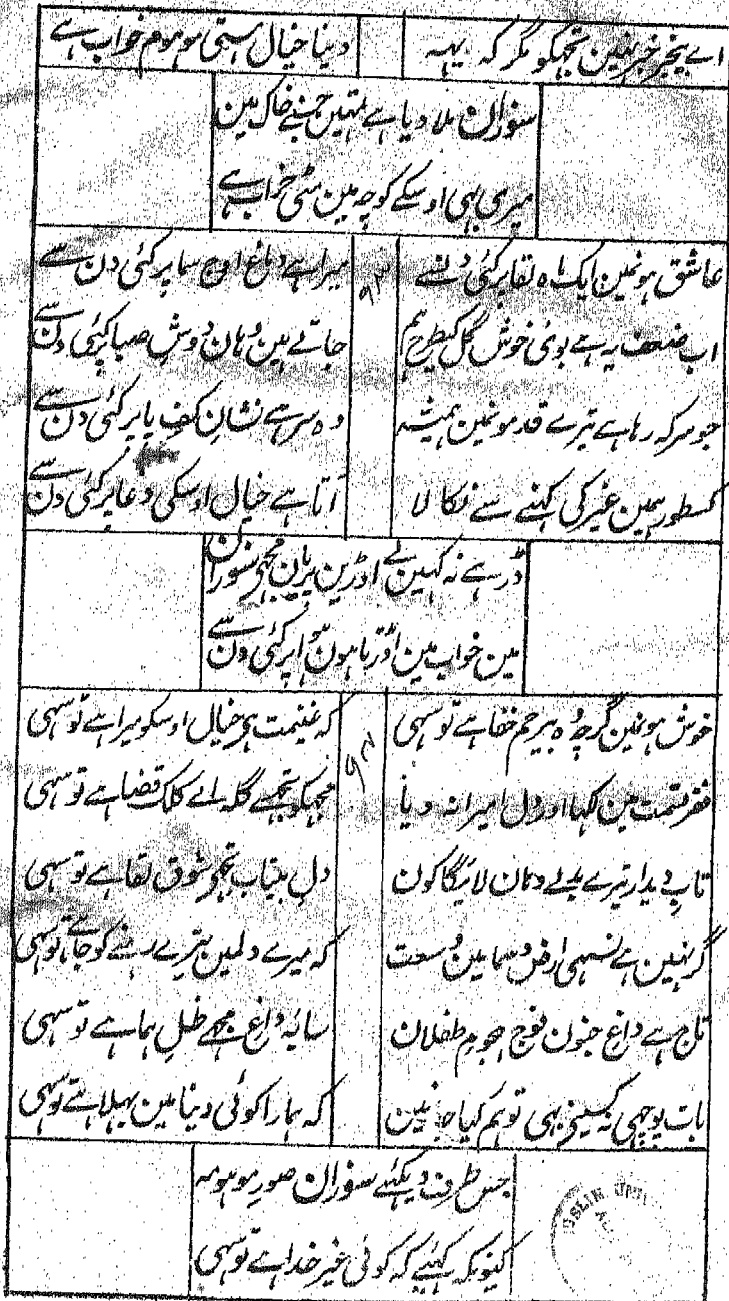 اے بیخبر خبر نہین تجھکو مگر کہ یہہ
دنیا خیال ہستی موہوم خواب ہے
سوزان ملا دیا ہے ہمین جسنے خاک مین
میری بہی اوسکے کوچہ مین مٹی خراب ہے
عاشق ہونمین ایک ماہ لقا پر کئی دنسے
میرا ہے دماغ اوج سما پر کئی دن سے
اب ضعف یہ ہے بوئی خوش گل کیطرح ہم
جاتے ہین وہان دوش صبا پر کئی دن سے
جو سر کہ رہا ہے تیرے قدمونمین ہمیشہ
وہ سر ہے نشان کف پا پر کئی دن سے
کسطور ہمین غیر کی کہنے سے نکالا
آتا ہے خیال اوسکی دعا پر کئی دن سے
ڈر ہے نہ کہین لے اوڑین پریان مجھے سوزان
مین خواب مین اڑتا ہون ہوا پر کئی دن سے
۹۳
خوش ہونمین گرچہ وہ بیرحم خفا ہے تو سہی
کہ غنیمت ہے خیال اوسکو میرا ہے تو سہی
فقر قسمت مین لکہا اور دل امیرانہ دیا
مجھکو تجھسے گلہ اے کلک قضا ہے تو سہی
تاب دیدار تیرے بدلے وہان لائیگا کون
دل بیتاب تجھے شوق لقا ہے تو سہی
گر نہین ہے نسہی ارض و سما مین وسعت
کہ میرے دلمین تیرے رہنے کو جا ہے تو سہی
تاج ہے داغ جنون فوج ہجوم طفلان
سایۂ داغ مجھے ظل ہما ہے تو سہی
بات پوچھی نہ کسینے بہی تو ہم کیا جانین
کہ ہمارا کوئی دنیا مین بہلا ہے تو سہی
جس طرف دیکہئے سوزان صور موہومہ
کیونکہ کہئیے کہ کوئی غیر خدا ہے تو سہی